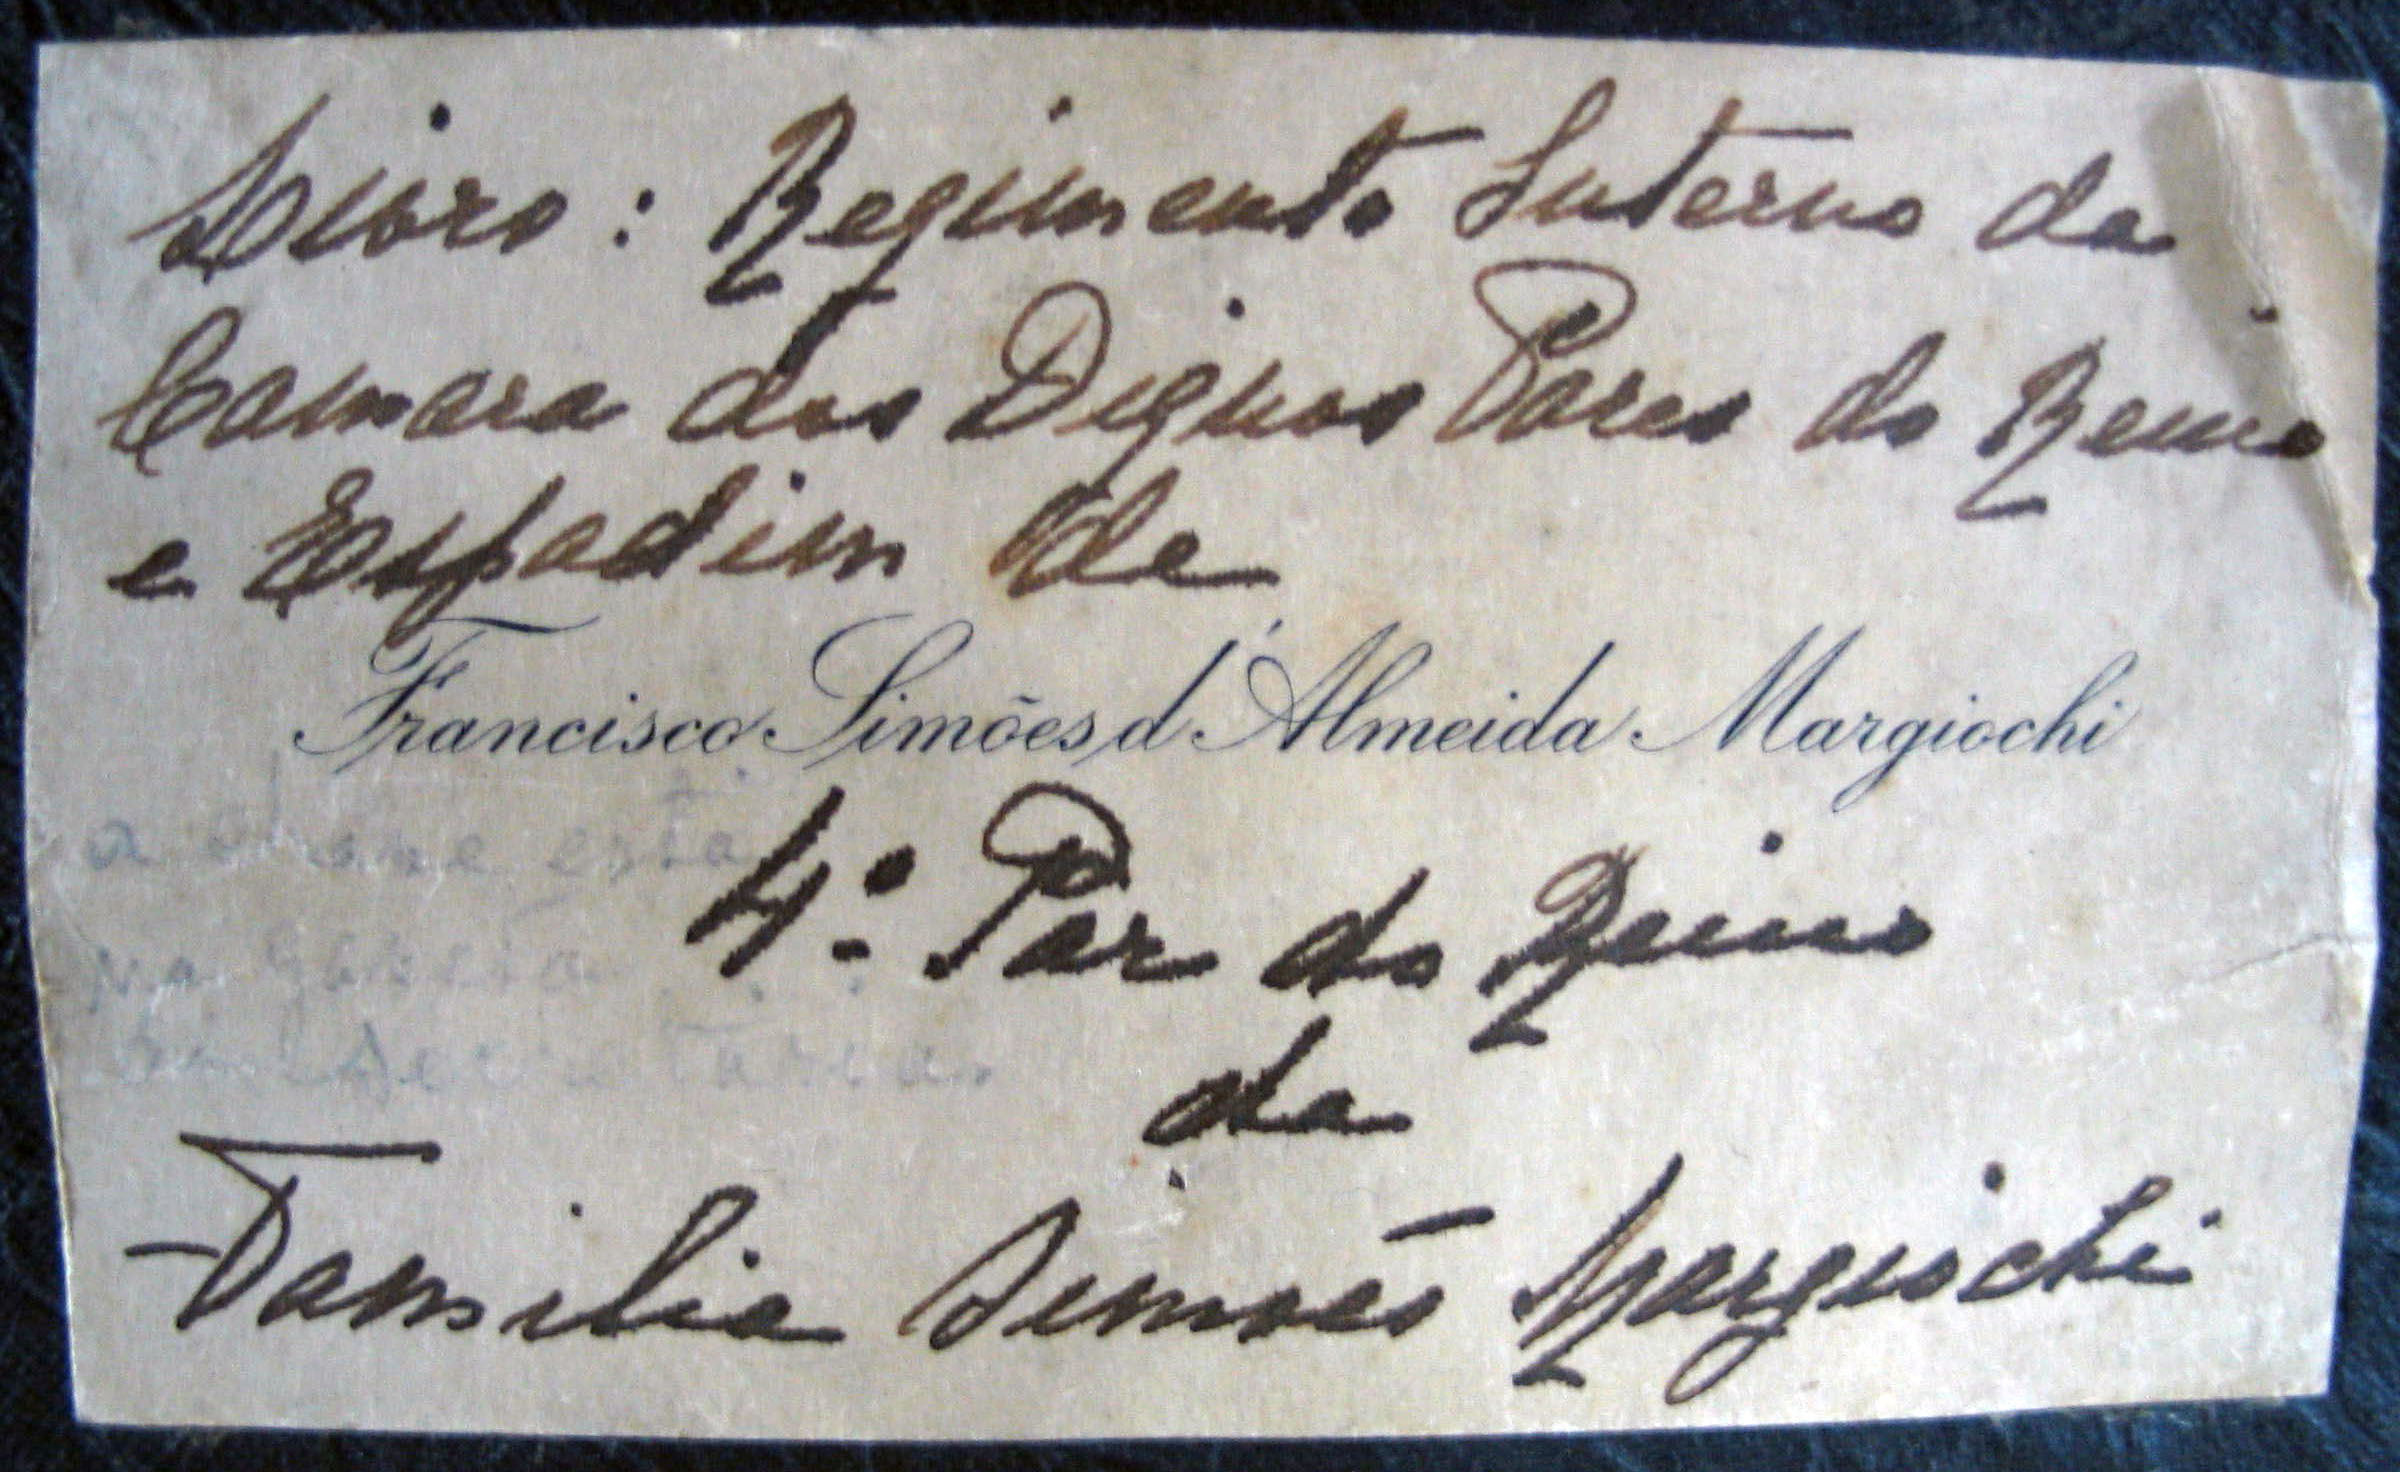 Livro: Regimento Interno da
Camara dos Dignos Pares do Reino
e Espadim de
Francisco Simões d'Almeida Margiochi
a chave está
4.º Par do Reino
na gaveta
da
da Secretaria.
Familia Simões Margiochi